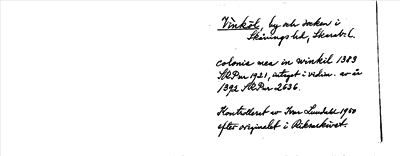 Vinköl, by och socken i
Skånings hd, Skarab. l.
colonia mea in winkil 1383
SRPnr 1921, intaget i vidim. av år
1392 SRPnr 2636.
Kontrollerat av Ivar Lundahl 1950
efter originalet i Riksarkivet.